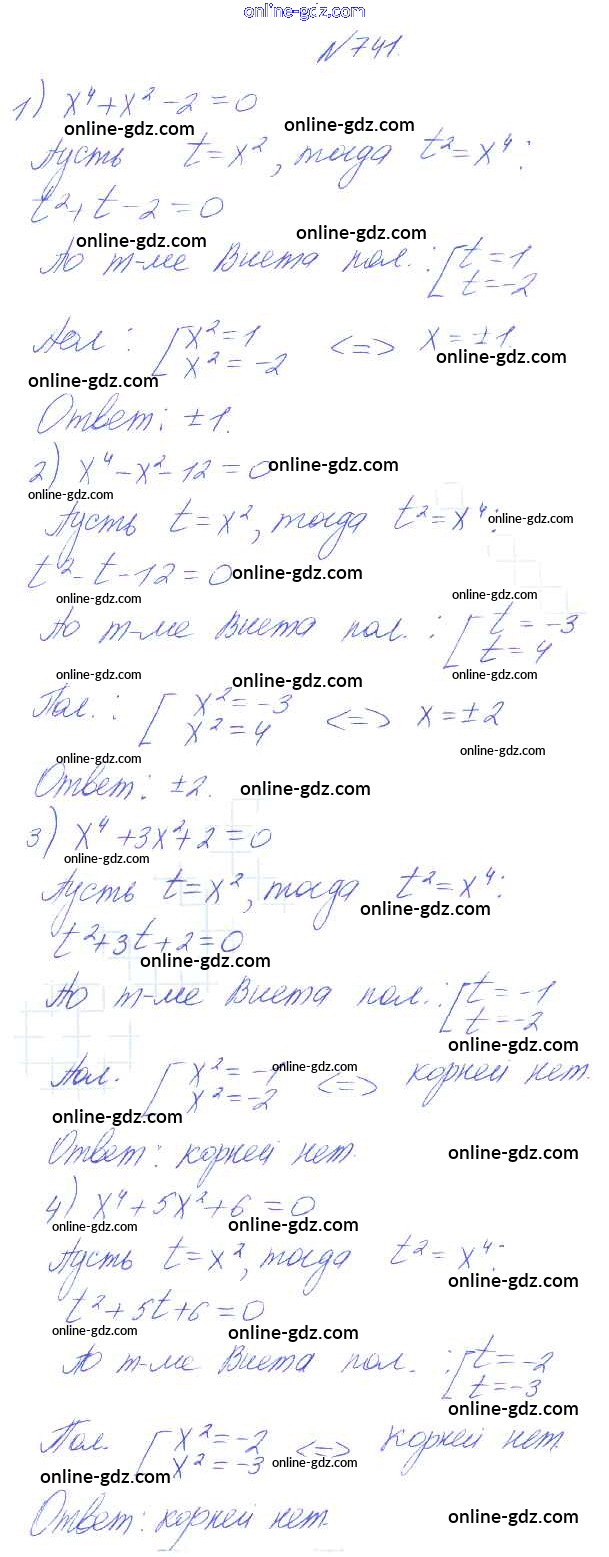 online-gdz.com
№741.
1) x⁴+x²-2=0
online-gdz.com online-gdz.com
Пусть t=x², тогда t²=x⁴:
t²+t-2=0
online-gdz.com online-gdz.com
По т-ме Виета пол.: [t=1
t=-2
Пол: [x²=1 <=> x=±1.
x²=-2
online-gdz.com online-gdz.com
Ответ: ±1.
2) x⁴-x²-12=0 online-gdz.com
online-gdz.com
Пусть t=x², тогда t²=x⁴: online-gdz.com
t²-t-12=0 online-gdz.com
online-gdz.com online-gdz.com
По т-ме Виета пол.: [t=-3
t=4
online-gdz.com online-gdz.com online-gdz.com
Пол.: [x²=-3 <=> x=±2
x²=4
online-gdz.com online-gdz.com
Ответ: ±2. online-gdz.com
3) x⁴+3x²+2=0
online-gdz.com
Пусть t=x², тогда t²=x⁴:
online-gdz.com
t²+3t+2=0
online-gdz.com
По т-ме Виета пол.: [t=-1
t=-2
online-gdz.com
Пол. [x²=-1 <=> корней нет.
x²=-2
online-gdz.com
online-gdz.com
Ответ: корней нет. online-gdz.com
4) x⁴+5x²+6=0
online-gdz.com online-gdz.com
Пусть t=x², тогда t²=x⁴:
online-gdz.com
t²+5t+6=0
online-gdz.com online-gdz.com
По т-ме Виета пол.: [t=-2
t=-3
online-gdz.com
Пол. [x²=-2 <=> корней нет
x²=-3
online-gdz.com online-gdz.com
Ответ: корней нет. online-gdz.com